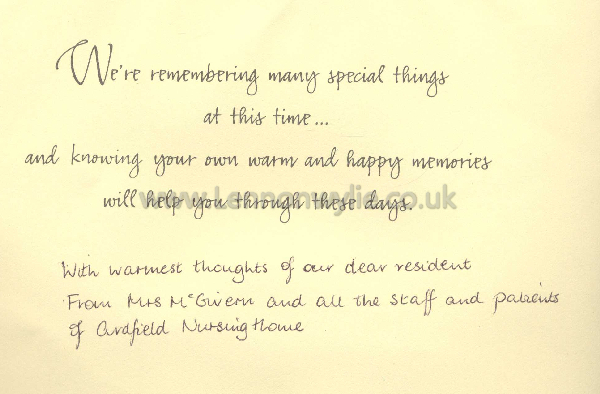 We're remembering many special things
at this time...
and knowing your own warm and happy memories
will help you through these days.
www.Lennonwylie.co.uk
With warmest thoughts of our dear resident
From Mrs McGivern and all the staff and patients
of Ardfield Nursing Home